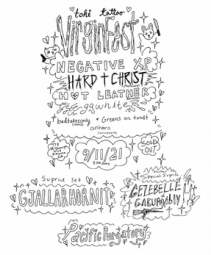 toké tattoo
VirginFest
NEGATIVE XP
HARD + CHRIST
HOT LEATHER
egqwhite
badtakesonly • Greens on toast
9/11/21
5pm
Suprise set
GJALLARHORNIT
GEZEBELLE
GABURGABLY
Pacific Purgatory